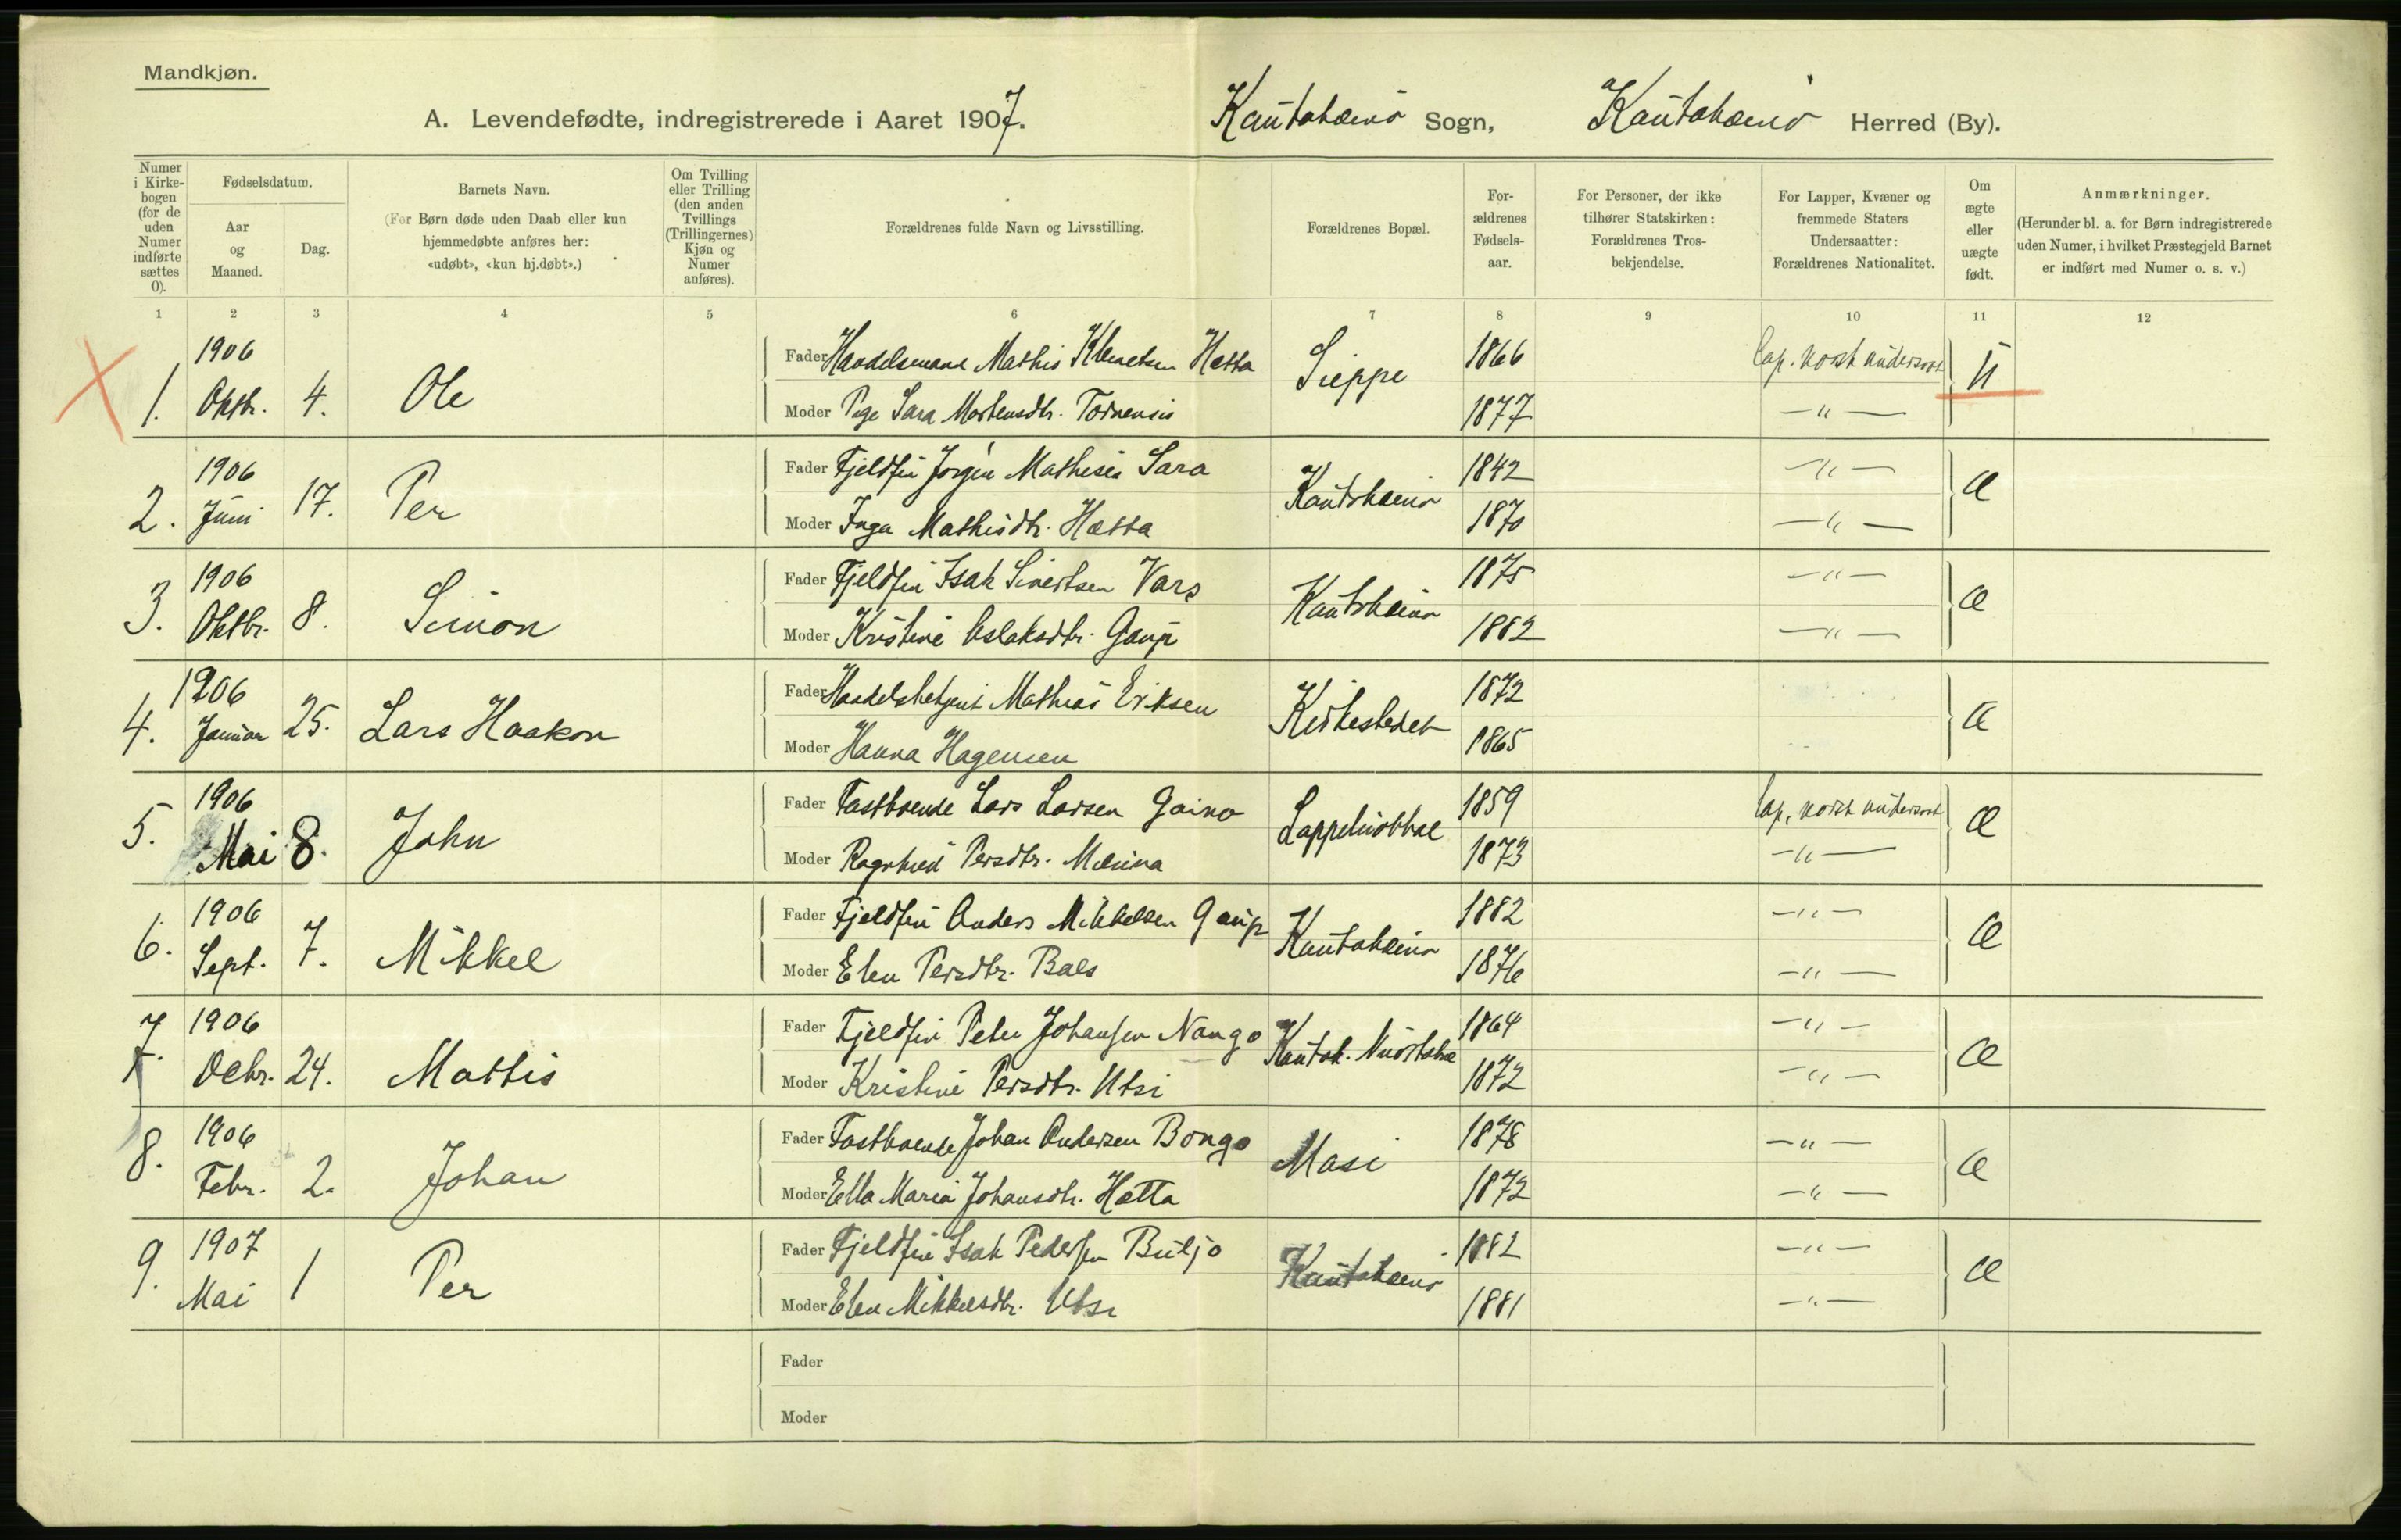 Mandkjøn.
A. Levendefødte, indregistrerede i Aaret 1907. Kautokeino Sogn, Kautokeino Herred (By).
Numer i Kirkebogen (for de uden Numer indførte sættes 0).
Fødselsdatum.
Aar og Maaned.
Dag.
Barnets Navn.
(For Børn døde uden Daab eller kun hjemmedøbte anføres her: «udøbt», «kun hj.døbt».)
Om Tvilling eller Trilling (den anden Tvillings (Trillingernes) Kjøn og Numer anføres).
Forældrenes fulde Navn og Livsstilling.
Forældrenes Bopæl.
Forældrenes Fødselsaar.
For Personer, der ikke tilhører Statskirken: Forældrenes Trosbekjendelse.
For Lapper, Kvæner og fremmede Staters Undersaatter: Forældrenes Nationalitet.
Om ægte eller uægte født.
Anmærkninger.
(Herunder bl. a. for Børn indregistrerede uden Numer, i hvilket Præstegjeld Barnet er indført med Numer o. s. v.)
1 2 3 4 5 6 7 8 9 10 11 12
1. 1906 Oktbr. 4. Ole
Fader Handelsmand Mathis Klemetsen Hætta Sieppe 1866 lap. norsk undersaat U
Moder Pige Sara Mortensdtr. Tornensis 1877 — " —
2. 1906 Juni 17. Per
Fader Fjeldfin Jørgen Mathesen Sara Kautokeino 1842 — " — Æ
Moder Inga Mathisdtr. Hætta 1870 — " —
3. 1906 Oktbr. 8. Simon
Fader Fjeldfin Isak Sivertsen Vars Kautokeino 1875 — " — Æ
Moder Kristine Aslaksdtr. Gaup 1882 — " —
4. 1906 Januar 25. Lars Haakon
Fader Handelsbetjent Mathias Eriksen Kirkestedet 1872 Æ
Moder Hanna Hagensen 1865
5. 1906 Mai 8. John
Fader Fastboende Lars Larsen Gaino 1859 lap. norsk undersaat Æ
Moder Ragnhild Persdtr. 1873 — " —
6. 1906 Sept. 7. Mikkel
Fader Fjeldfin Anders Mikkelsen Gaup Kautokeino 1882 — " — Æ
Moder Elen Persdtr. Bals 1876 — " —
7. 1906 Debr. 24. Mattis
Fader Fjeldfin Peter Johansen Nango Kautok. 1864 — " — Æ
Moder Kristine Persdtr. Utsi 1872 — " —
8. 1906 Febr. 2. Johan
Fader Fastboende Johan Andersen Bongo Masi 1878 — " — Æ
Moder Ella Maria Johansdtr. Hætta 1872 — " —
9. 1907 Mai 1 Per
Fader Fjeldfin Isak Pedersen Buljo Kautokeino 1882 — " — Æ
Moder Elen Mikkelsdtr. Utsi 1881 — " —
Fader
Moder